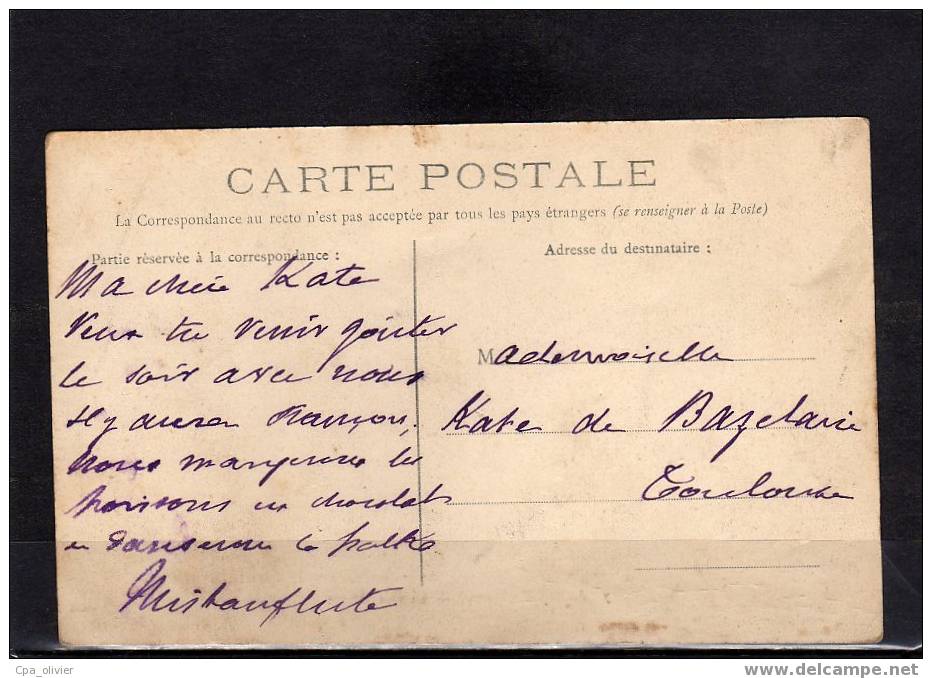 CARTE POSTALE
La Correspondance au recto n'est pas acceptée par tous les pays étrangers (se renseigner à la Poste)
Partie réservée à la correspondance :
Ma chère Kate
Veux tu venir goûter
le soir avec nous
Il y aura François,
nous mangerons les
poissons en chocolat
et danserons la polka
Mistanflute
Adresse du destinataire :
Mademoiselle
Kate de Bazelaire
Toulouse
Cpa_olivier
www.delcampe.net